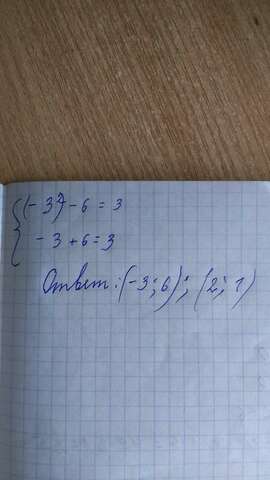 (-3²) - 6 = 3
- 3 + 6 = 3
Ответ: (-3; 6); (2; 1)